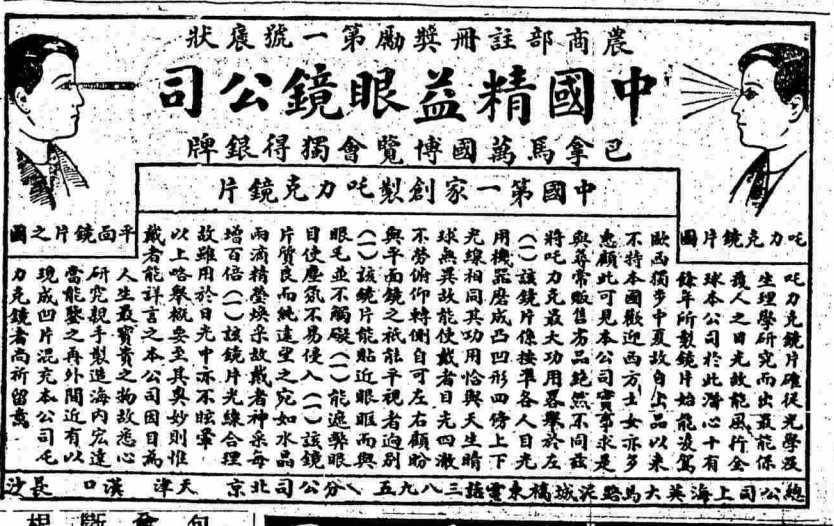 農商部註冊獎勵第一號褒狀
中國精益眼鏡公司
巴拿馬萬國博覽會獨得銀牌
中國第一家創製吒力克鏡片
吒力克鏡片圖
平面鏡片之圖
吒力克鏡片確從光學及
生理學研究而出最能保
護人之目光故能風行全
球本公司於此潛心十有
餘年所製鏡片始能凌駕
歐西獨步中夏故自上品以來
不特本國歡迎西方士女亦多
惠顧此可見本公司實事求是
與尋常販售劣品絕然不同茲
將吒力克最大功用畧舉於左
(一)該鏡片係按準各人目光
用機器磨成凸凹形四傍上下
光線相同其功用恰與天生睛
球無異故能使戴者目光四澈
不勞俯仰轉側自可左右顧盼
與平面鏡之祇能平視者迥別
(一)該鏡片能貼近眼眶而與
眼毛並不觸礙(一)能遮弊眼
目使塵氛不易侵入(一)該鏡
片質良而純遠望之宛如水晶
兩滴精瑩煥采故戴者神采每
增百倍(一)該鏡片光線合理
故雖用於日光中亦不眩暈
以上略舉概要至其奧妙則惟
戴者能詳言之本公司因目為
人生最寶貴之物故悉心
研究親手製造海內宏達
當能鑒之再外間近有以
現成凹片混充本公司吒
力克鏡者尚祈留意
總公司上海英大馬路泥城橋東電話三八九五 分公司北京 天津 漢口 長沙